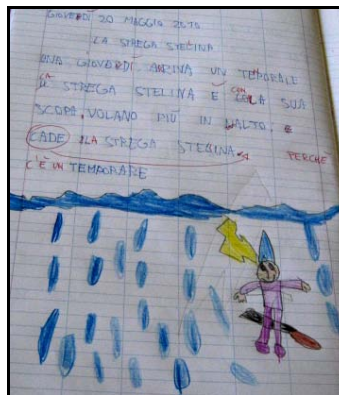 GIOVERDÌ 20 MAGGIO 2010
LA STREGA STELINA
UNA GIOVERDÌ ARRINA UN TEMPORALE
LA STREGA STELINA E CON LA SUA
SCOPA, VOLANO PIÙ IN HALTO, E
CADE LA STREGA STELINA PERCHÈ
C'È UN TEMPORARE